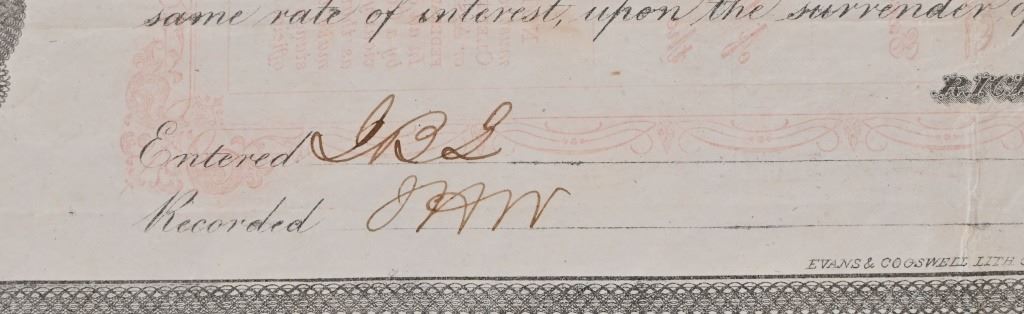 same rate of interest, upon the surrender
RICH
Entered JBL
Recorded JHW
EVANS & COGSWELL LITH